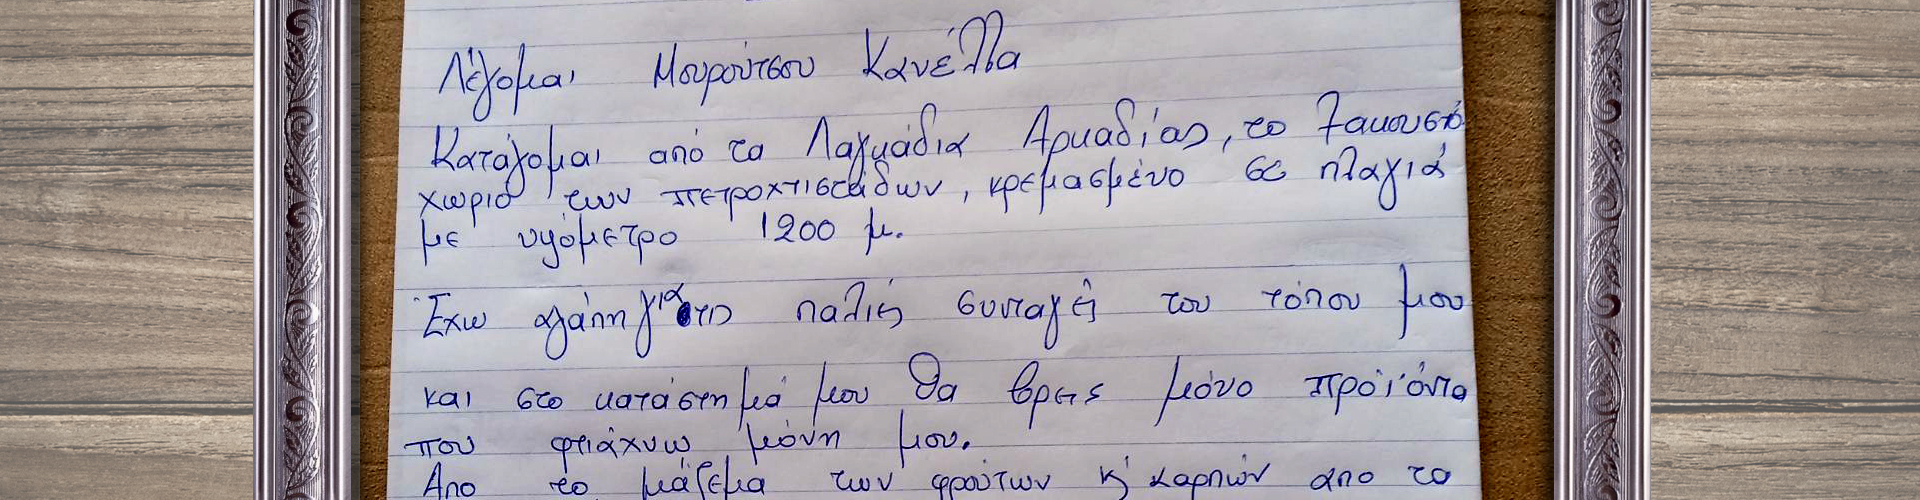 Λέγομαι Μουρούτσου Κανέλλα
Κατάγομαι από τα Λαγκάδια Αρκαδίας, το ξακουστό
χωριό των πετροχτιστάδων, κρεμασμένο σε πλαγιά
με υψόμετρο 1200 μ.
Έχω αγάπη για τις παλιές συνταγές του τόπου μου
και στο κατάστημά μου θα βρεις μόνο προϊόντα
που φτιάχνω μόνη μου.
Απο το μάζεμα των φρούτων κ' καρπών απο το